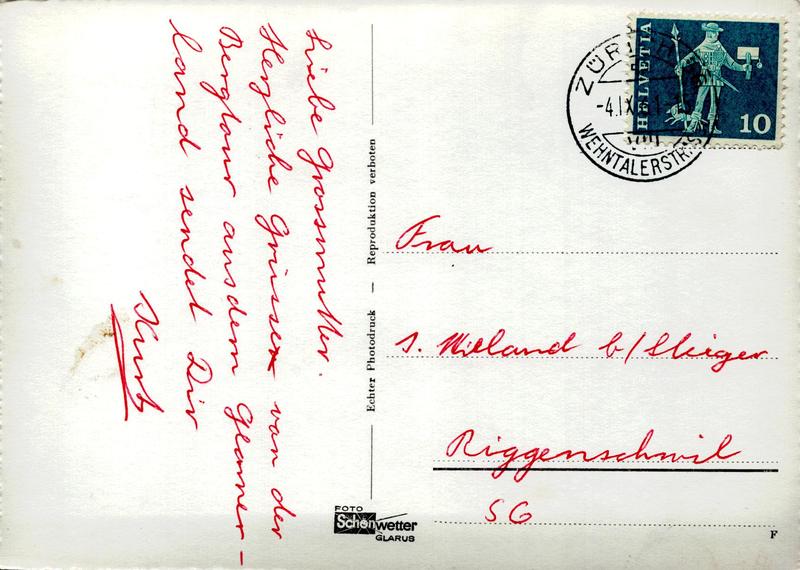 Liebe Grossmutter.
Herzliche Grüsse von der
Bergtour aus dem Glarner-
land sendet Dir
Kurt
Echter Photodruck — Reproduktion verboten
FOTO
Schönwetter
GLARUS
HELVETIA
10
ZÜRICH
-4.IX.61
WEHNTALERSTR.
Frau
S. Wieland b/ Steiger
Riggenschwil
SG
F